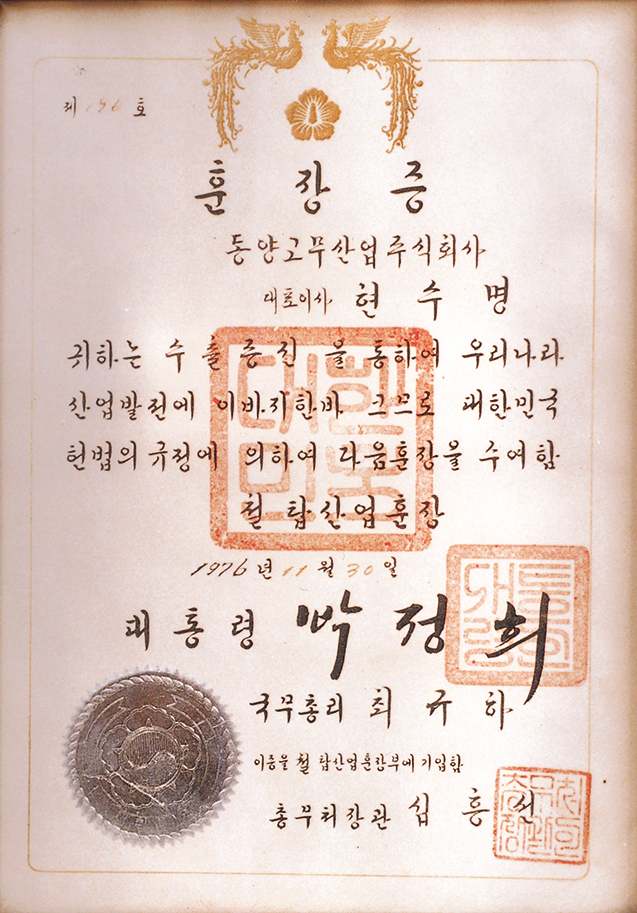 제 호
훈 장 증
동양고무산업주식회사
대표이사 현 수 명
귀하는 수출증진 을 통하여 우리나라
산업발전에 이바지한바 크므로 대한민국
헌법의 규정에 의하여 다음훈장을 수여함
철 탑 산업훈장
1976년 11월 30일
대통령 박정희
국무총리 최규하
이증을 철 탑산업훈장부에 기입함
총무처장관 심흥선
대한민국